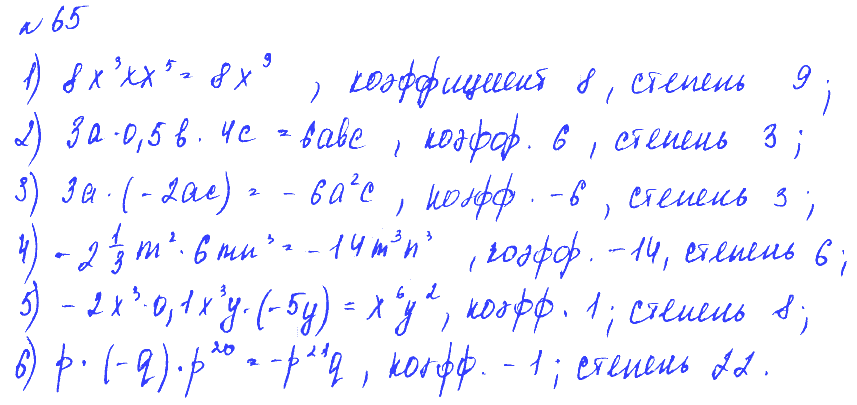 № 65
1) 8x³xx⁵ = 8x⁹, коэффициент 8, степень 9;
2) 3a · 0,5b · 4c = 6abc, коэфф. 6, степень 3;
3) 3a · (-2ac) = -6a²c, коэфф. -6, степень 3;
4) -2 1/3 m² · 6mn³ = -14m³n³, коэфф. -14, степень 6;
5) -2x³ · 0,1x³y · (-5y) = x⁶y², коэфф. 1; степень 8;
6) p · (-q) · p²⁰ = -p²¹q, коэфф. -1; степень 22.